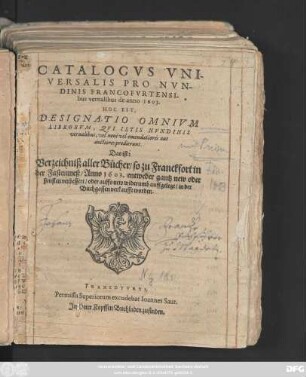 CATALOGVS VNI-
VERSALIS PRO NVN-
DINIS FRANCOFVRTENSI-
bus vernalibus de anno 1603.
HOC EST,
DESIGNATIO OMNIVM
LIBRORVM, QVI ISTIS NVNDINIS
vernalibus, vel noui vel emendatiores aut
auctiores prodierunt.
Das ist:
Verzeichnuß aller Bücher/ so zu Franckfort in
der Fastenmeß/ Anno 1603. entweder gantz new oder
sonsten verbessert/ oder auffs new widerumb auffgelegt/ in der
Buchgassen verkaufft worden.
FRANCFVRTI,
Permissu Superiorum excudebat Ioannes Saur.
In Peter Kopffen Buchladen zufinden.